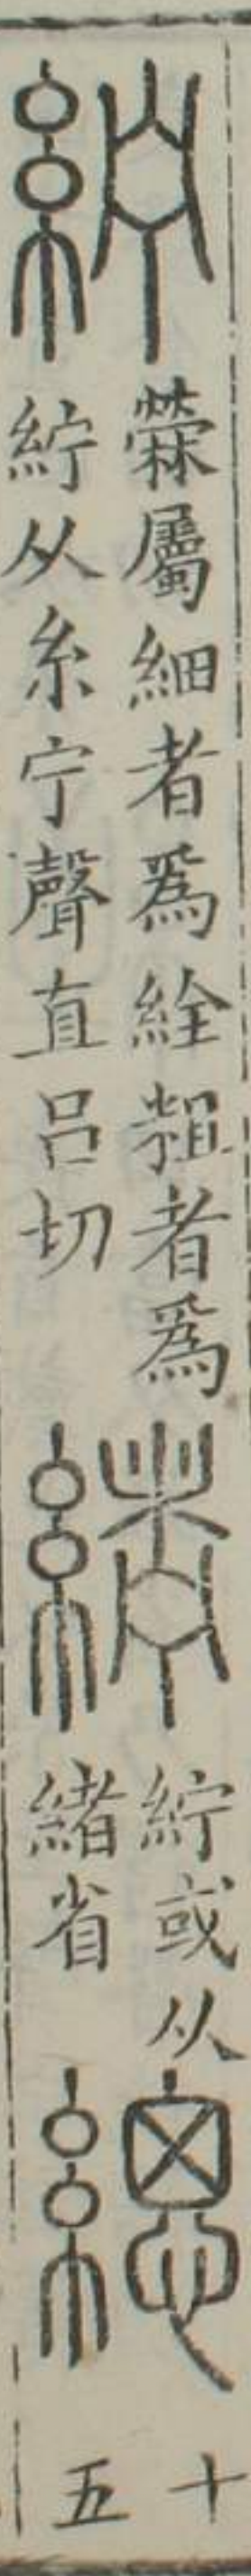 紵
𦀓屬細者爲絟粗者爲
紵从糸宁聲直呂切
𦂂
紵或从
緒省
緦
十
五